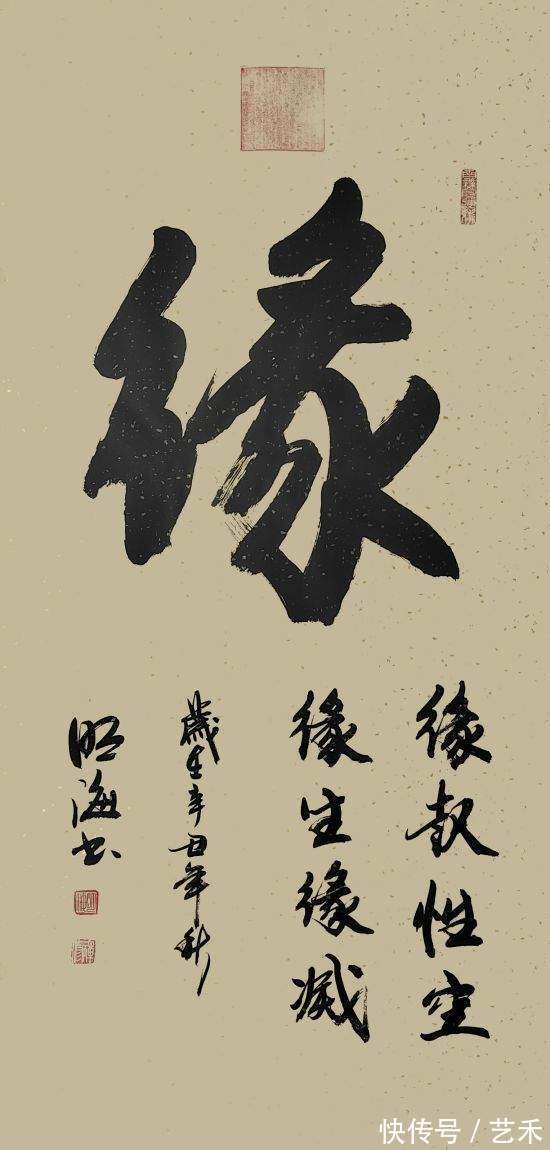 缘
缘起性空
缘生缘滅
歲在辛丑年秋
明海书
快传号 / 艺禾